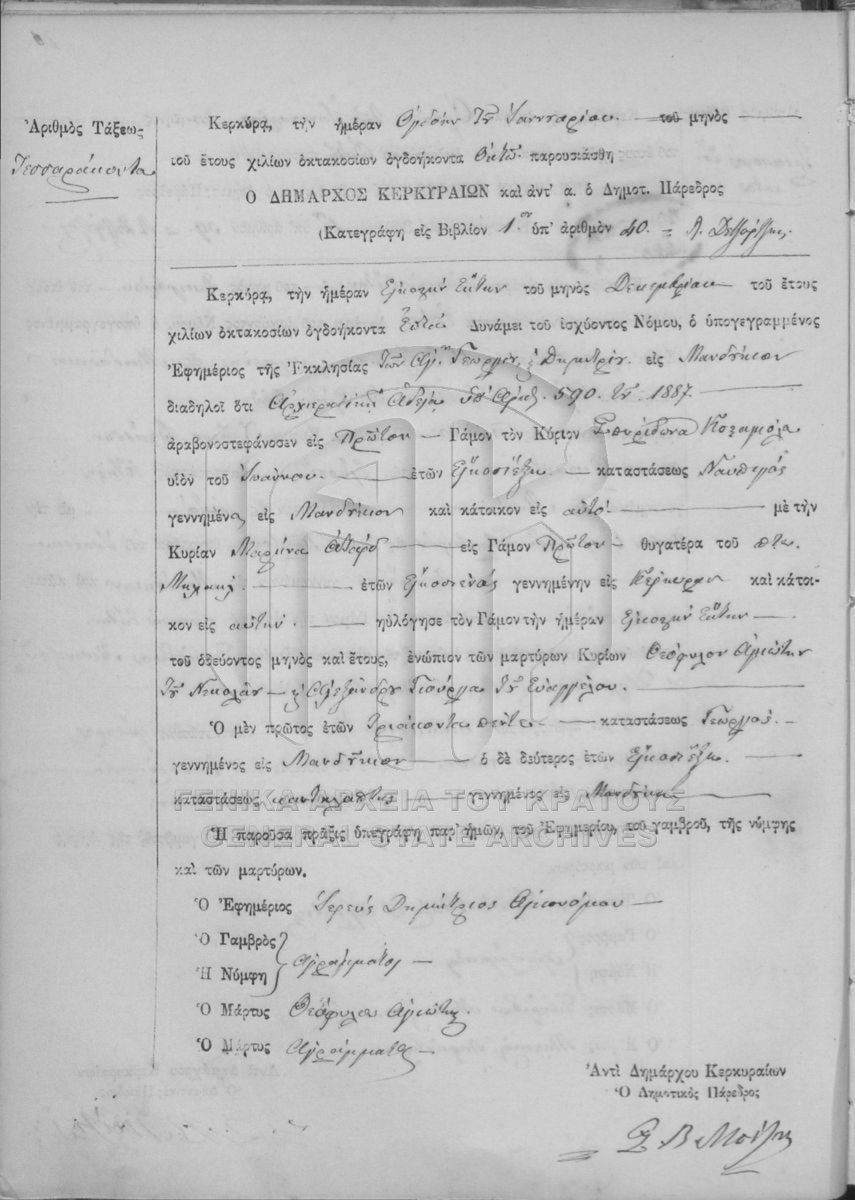 Ἀριθμὸς Τάξεως
Τεσσαράκοντα
Κερκύρᾳ, τὴν ἡμέραν Ὀγδόην τοῦ Ἰαννουαρίου τοῦ μηνὸς
τοῦ ἔτους χιλίων ὀκτακοσίων ὀγδοήκοντα Ὀκτὼ παρουσιάσθη
Ο ΔΗΜΑΡΧΟΣ ΚΕΡΚΥΡΑΙΩΝ καὶ ἀντ' α. ὁ Δημοτ. Πάρεδρος
(Κατεγράφη εἰς Βιβλίον 1ον ὑπ' ἀριθμὸν 40.
Κερκύρᾳ, τὴν ἡμέραν Εἰκοστὴν Ἕκτην τοῦ μηνὸς Δεκεμβρίου τοῦ ἔτους
χιλίων ὀκτακοσίων ὀγδοήκοντα Ἑπτὰ Δυνάμει τοῦ ἰσχύοντος Νόμου, ὁ ὑπογεγραμμένος
Ἐφημέριος τῆς Ἐκκλησίας τῶν Ἁγ. Γεωργίου & Δημητρίου εἰς Μανδούκιον
διαδηλοῖ ὅτι Ἀρχιερατικῇ Ἀδείᾳ ὑπ' Ἀριθ. 590. τοῦ 1887.
ἀραβονοστεφάνοσεν εἰς Πρῶτον Γάμον τὸν Κύριον Σπυρίδωνα
υἱὸν τοῦ Ἰωάννου ἐτῶν Εἰκοσιέξη καταστάσεως Ναυπηγὸς
γεννημένα εἰς Μανδούκιον καὶ κάτοικον εἰς αὐτό. μὲ τὴν
Κυρίαν Μαρίνα εἰς Γάμον Πρῶτον θυγατέρα τοῦ ποτε
Μιχαήλ. ἐτῶν Εἰκοσιενὸς γεννημένην εἰς Κέρκυραν καὶ κάτοι-
κον εἰς αὐτήν. ηὐλόγησε τὸν Γάμον τὴν ἡμέραν Εἰκοστὴν Ἕκτην
τοῦ ὁδεύοντος μηνὸς καὶ ἔτους, ἐνώπιον τῶν μαρτύρων Κυρίων Θεόφυλον Ἀγιώτην
τοῦ Νικολάου & Ἀλεξάνδρου Γιούργα τοῦ Εὐαγγέλου.
Ὁ μὲν πρῶτος ἐτῶν Τριάκοντα πέντε καταστάσεως Γεωργὸς.
γεννημένος εἰς Μανδούκιον ὁ δὲ δεύτερος ἐτῶν Εἰκοσιέξη.
καταστάσεως γεννημένος εἰς Μανδούκιον
ΓΕΝΙΚΑ ΑΡΧΕΙΑ ΤΟΥ ΚΡΑΤΟΥΣ
GENERAL STATE ARCHIVES
Ἡ παροῦσα πρᾶξις ὑπεγράφη παρ' ἡμῶν, τοῦ Ἐφημερίου, τοῦ γαμβροῦ, τῆς νύμφης
καὶ τῶν μαρτύρων.
Ὁ Ἐφημέριος Ἱερεὺς Δημήτριος Οἰκονόμου
Ὁ Γαμβρὸς
Ἡ Νύμφη Ἀγράμματοι
Ὁ Μάρτυς Θεόφυλος Ἀγιώτης
Ὁ Μάρτυς Ἀγράμματος
Ἀντὶ Δημάρχου Κερκυραίων
Ὁ Δημοτικὸς Πάρεδρος